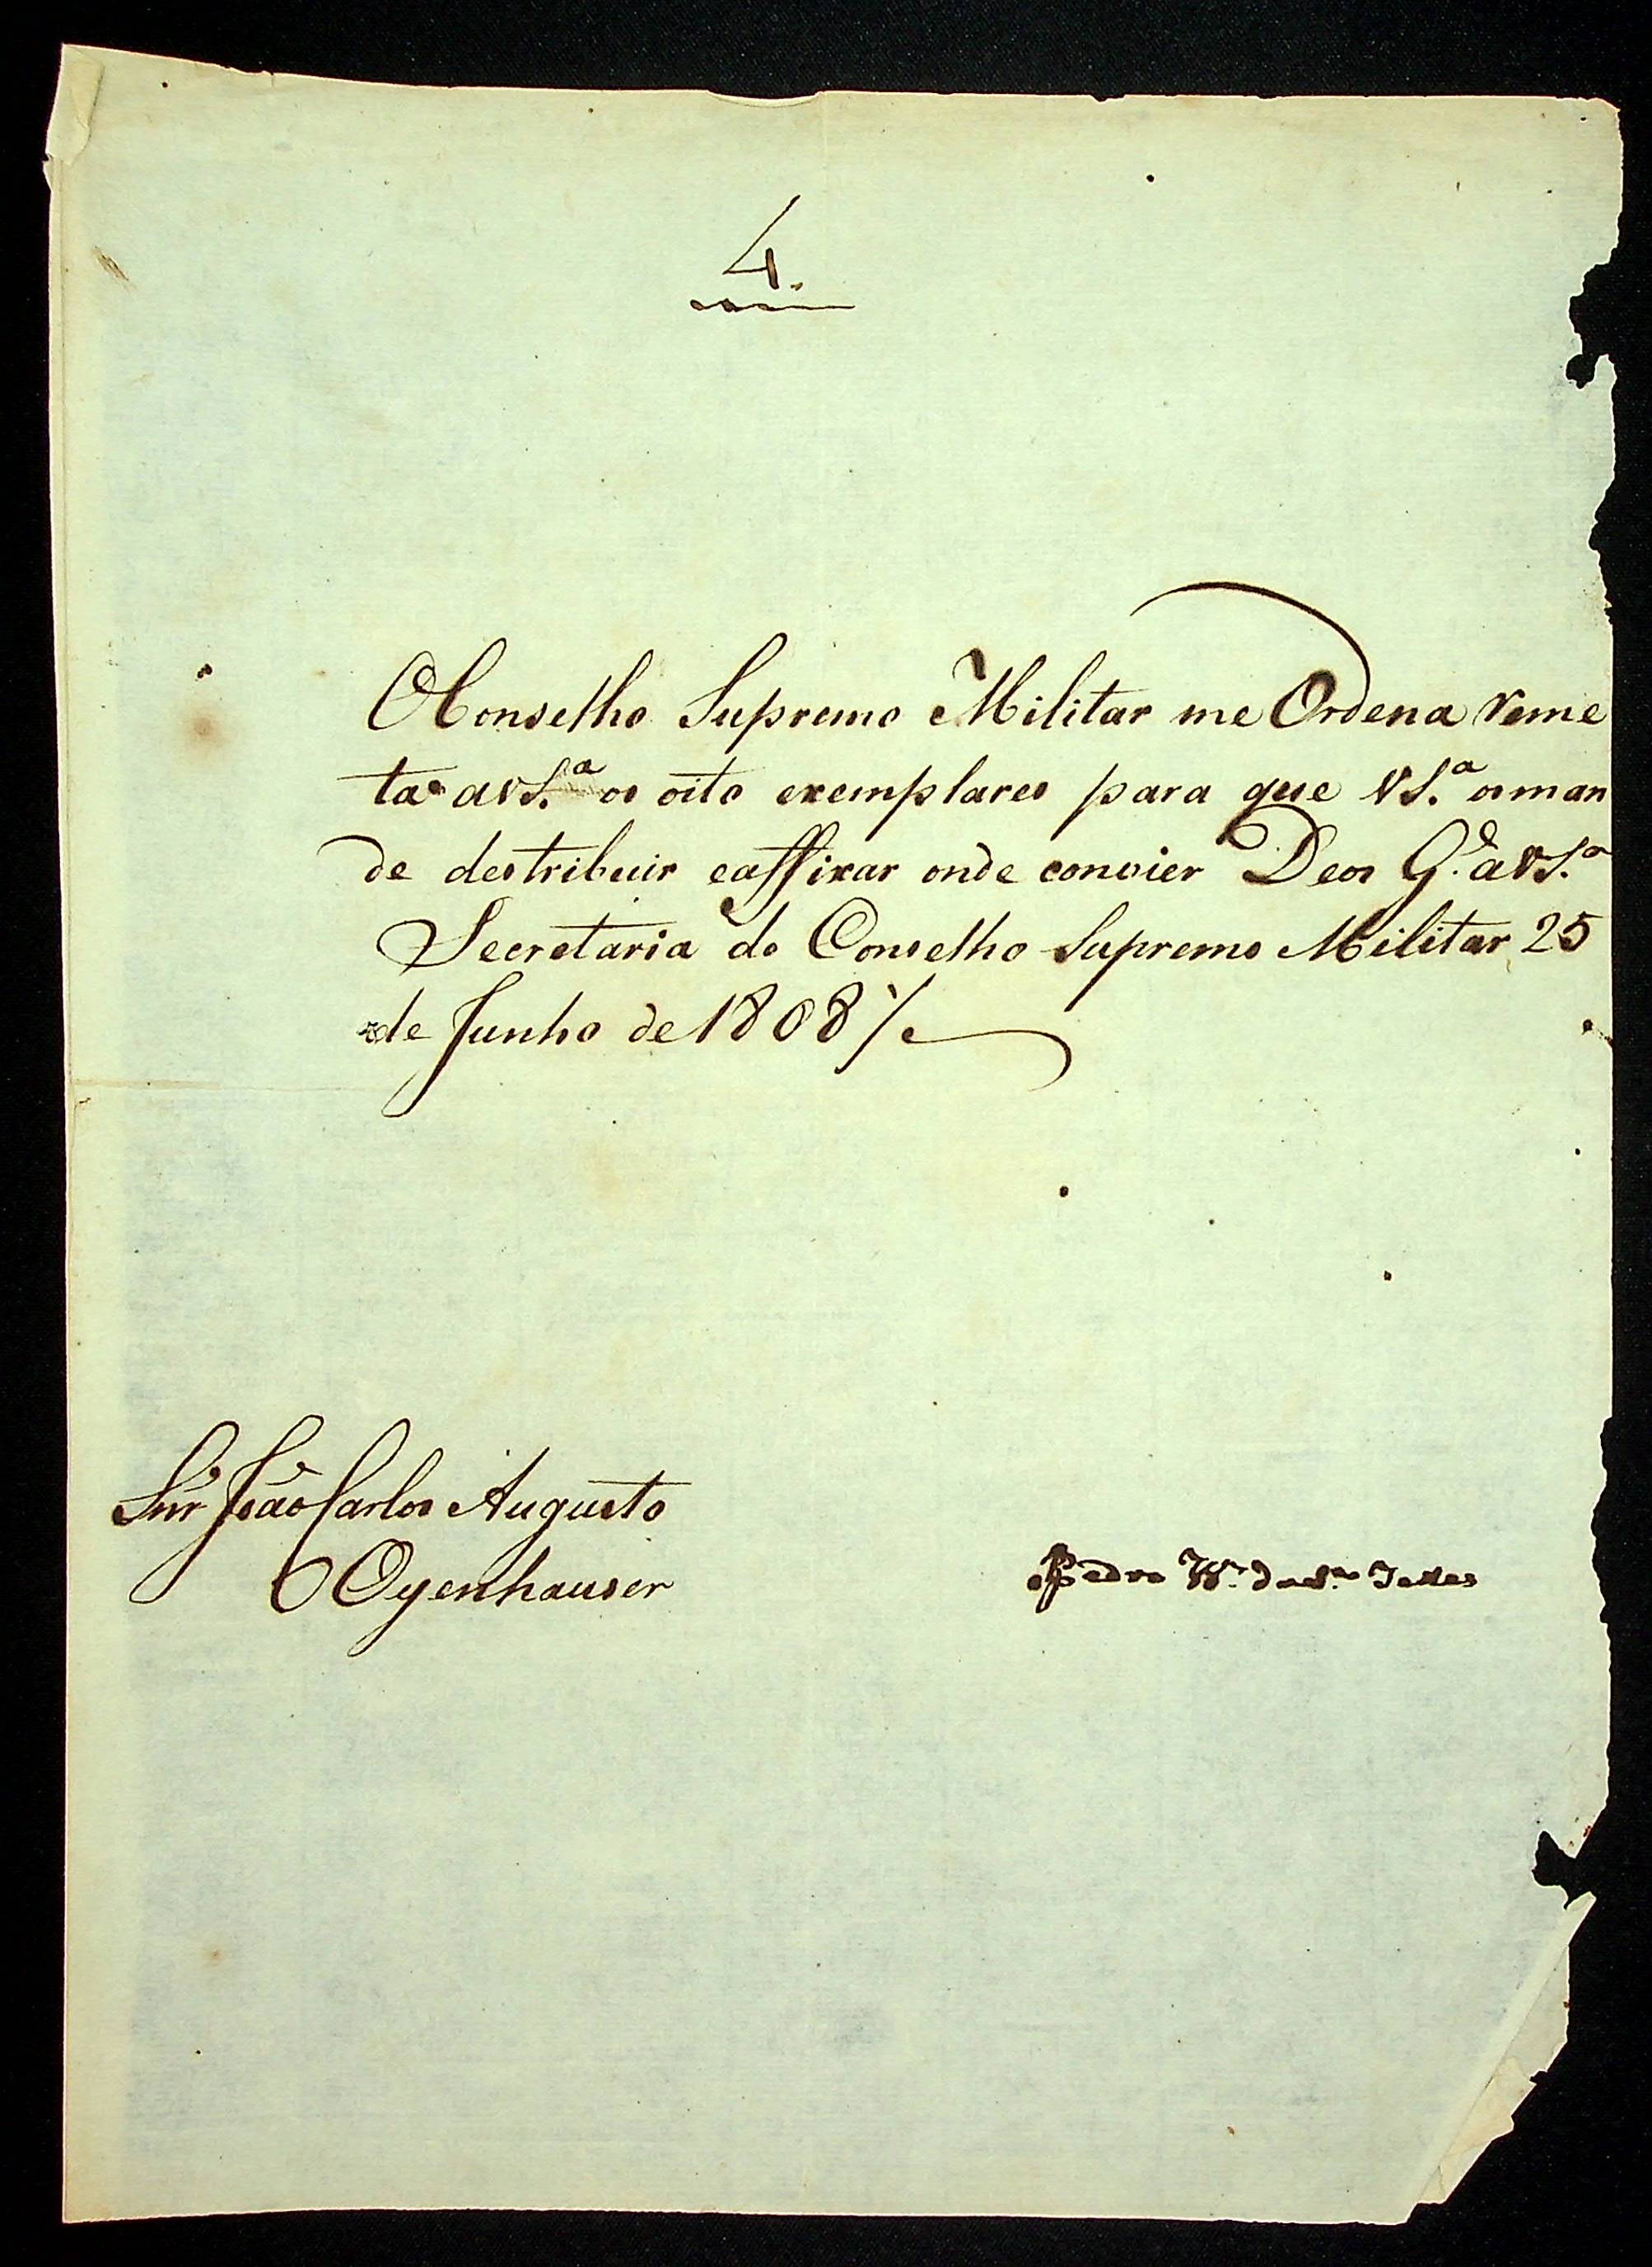 4.
O Conselho Supremo Militar me Ordena reme
ta a V S.ª os oito exemplares para que V S.ª os man
de destribuir e affixar onde convier Deos G.e a V S.ª
Secretaria do Conselho Supremo Militar 25
de Junho de 1808 /
Snr João Carlos Augusto
Oyenhauser
Pedro Telles